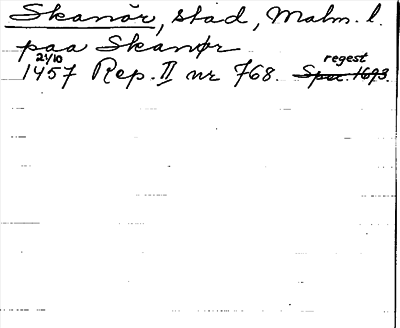 Skanör, stad, Malm. l.
paa Skanør
21/10 regest
1457 Rep. II nr 768. Spec. 1693.